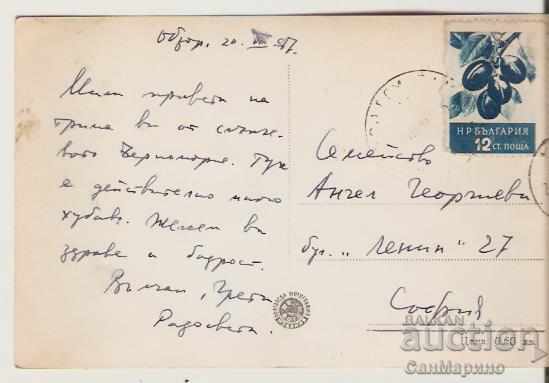 Обзор, 20. VII. 57.
Мили привети на
трима ви от слънче-
вото Черноморие. Тук
е действително много
хубаво. Желаем ви
здраве и бодрост.
Грети
Радосвета.
НР БЪЛГАРИЯ
12 СТ. ПОЩА
Семейство
Ангел Георгиеви
бул. „Ленин" 27
София
Цена 0.60 лв.
BALKAN
auction
СанМарино